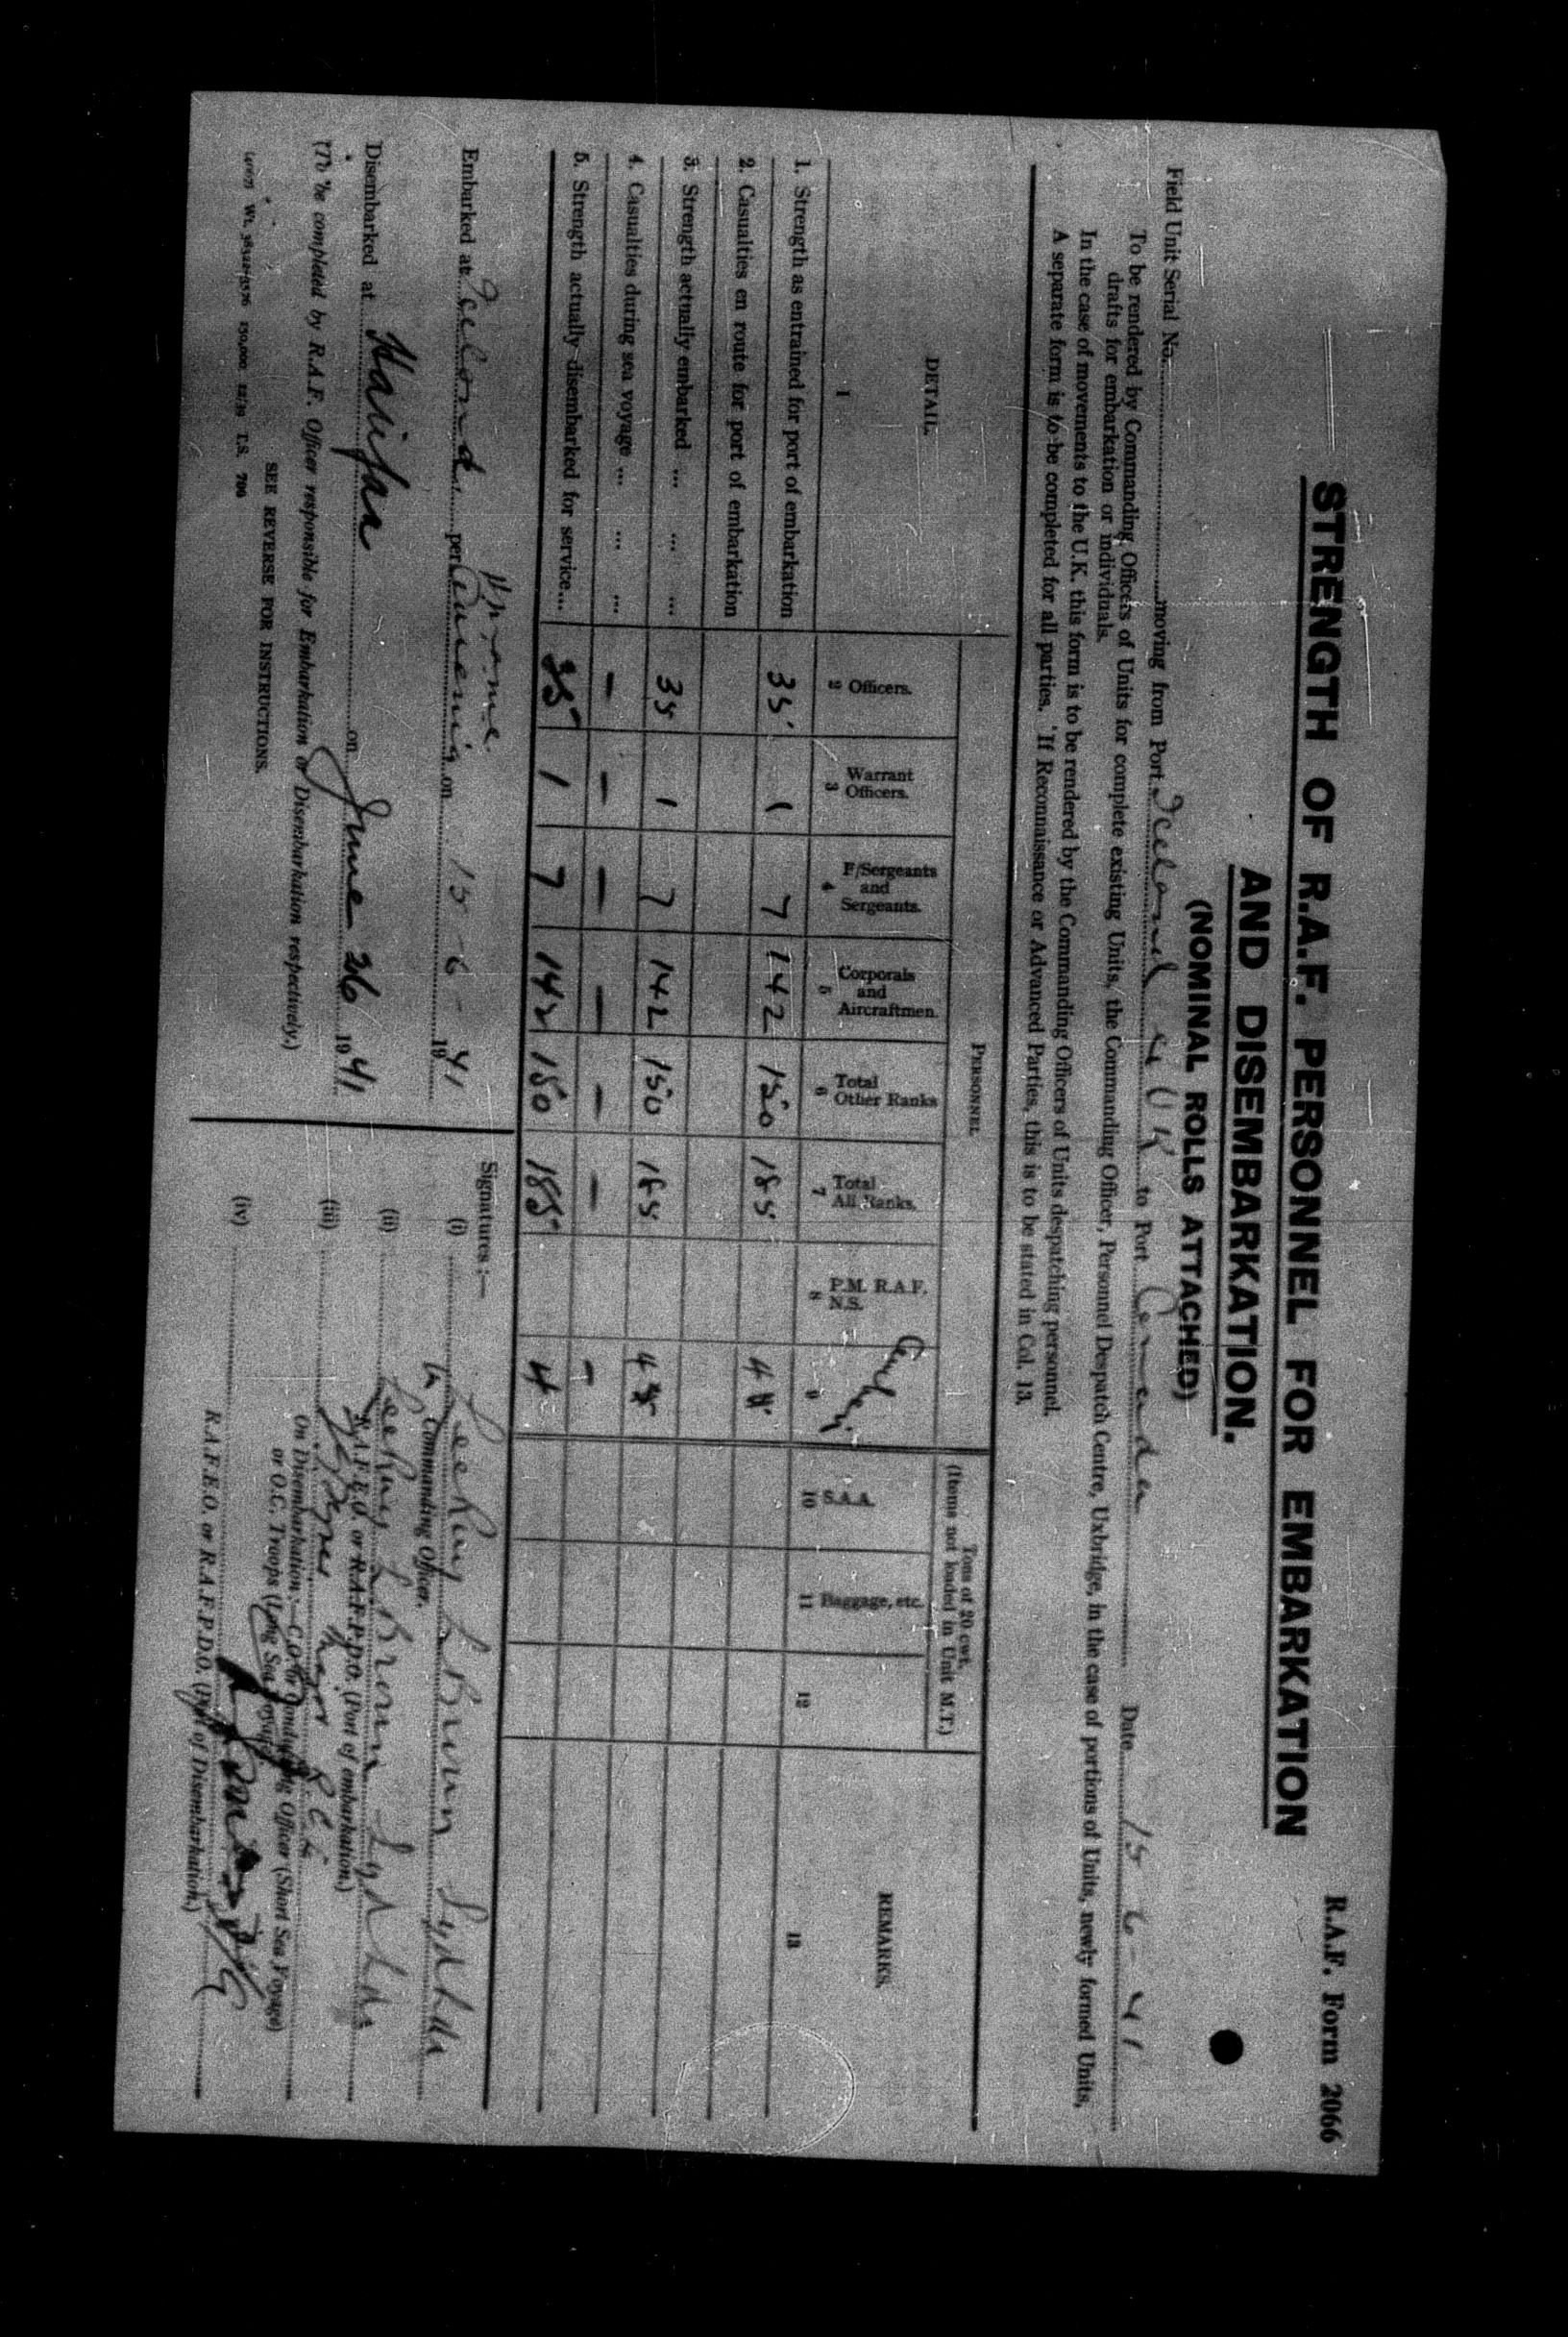 R.A.F. Form 2066
STRENGTH OF R.A.F. PERSONNEL FOR EMBARKATION
AND DISEMBARKATION.
(NOMINAL ROLLS ATTACHED)
Field Unit Serial No. moving from Port Iceland & UK to Port Canada Date 15-6-41
To be rendered by Commanding Officers of Units for complete existing Units, the Commanding Officer, Personnel Despatch Centre, Uxbridge, in the case of portions of Units, newly formed Units,
drafts for embarkation or individuals.
In the case of movements to the U.K. this form is to be rendered by the Commanding Officers of Units despatching personnel.
A separate form is to be completed for all parties. If Reconnaissance or Advanced Parties, this is to be stated in Col. 13.
DETAIL. PERSONNEL Tons of 20 cwt. (Items not loaded in Unit M.T.) REMARKS.
Officers. Warrant Officers. F/Sergeants and Sergeants. Corporals and Aircraftmen. Total Other Ranks Total All Ranks. P.M. R.A.F. N.S. S.A.A. Baggage, etc.
1 2 3 4 5 6 7 8 9 10 11 12 13
1. Strength as entrained for port of embarkation 35 1 7 142 150 185 4
2. Casualties en route for port of embarkation
3. Strength actually embarked ... ... ... 35 1 7 142 150 185 4
4. Casualties during sea voyage ... ... ... - - - - - - -
5. Strength actually disembarked for service... 35 1 7 142 150 185 4
Embarked at Iceland per Ausonia on 15-6-1941
Disembarked at Halifax on June 26 1941
(To be completed by R.A.F. Officer responsible for Embarkation or Disembarkation respectively.)
SEE REVERSE FOR INSTRUCTIONS.
150,000 12/39 T.S. 700
Signatures :—
(i) LeRoy L Brown S/Ldr
Commanding Officer.
(ii) LeRoy L Brown S/Ldr
R.A.F.E.O. or R.A.F.P.D.O. (Port of embarkation.)
(iii) Major
On Disembarkation:—C.O. or Conducting Officer (Short Sea Voyage)
or O.C. Troops (Long Sea Voyage)
(iv)
R.A.F.E.O. or R.A.F.P.D.O. (port of Disembarkation.)